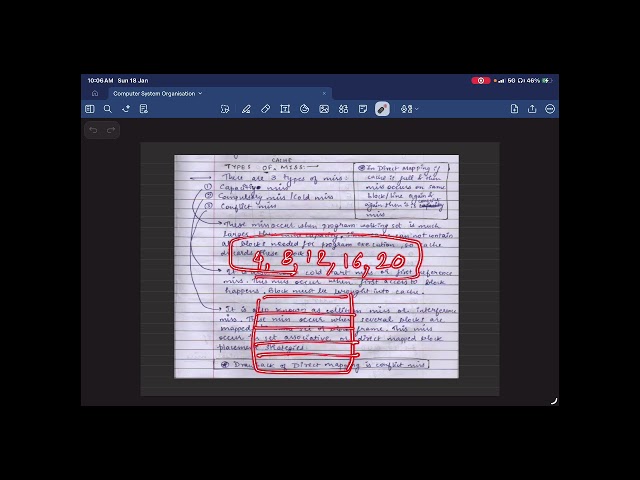 10:06 AM Sun 18 Jan
5G 46%
Computer System Organisation
CACHE
TYPES OF MISS:
There are 3 types of miss:
① Capacity miss
② Compulsory miss/Cold miss
③ Conflict miss
In Direct Mapping if
cache is full & then
miss occurs on same
block/line again &
again then it is capacity
miss
These miss occur when program working set is much
larger than cache capacity. cannot contain
all blocks needed for program execution, so cache
discards these block
4, 8, 12, 16, 20
It is cold start miss or first reference
miss. This miss occur when first access to block
happens. Block must be brought into cache.
It is also known as collision miss or interference
miss. These miss occur when several blocks are
mapped to same set or block frame. This miss
occur in set associative or direct mapped block
placement strategies
Drawback of Direct mapping is conflict miss